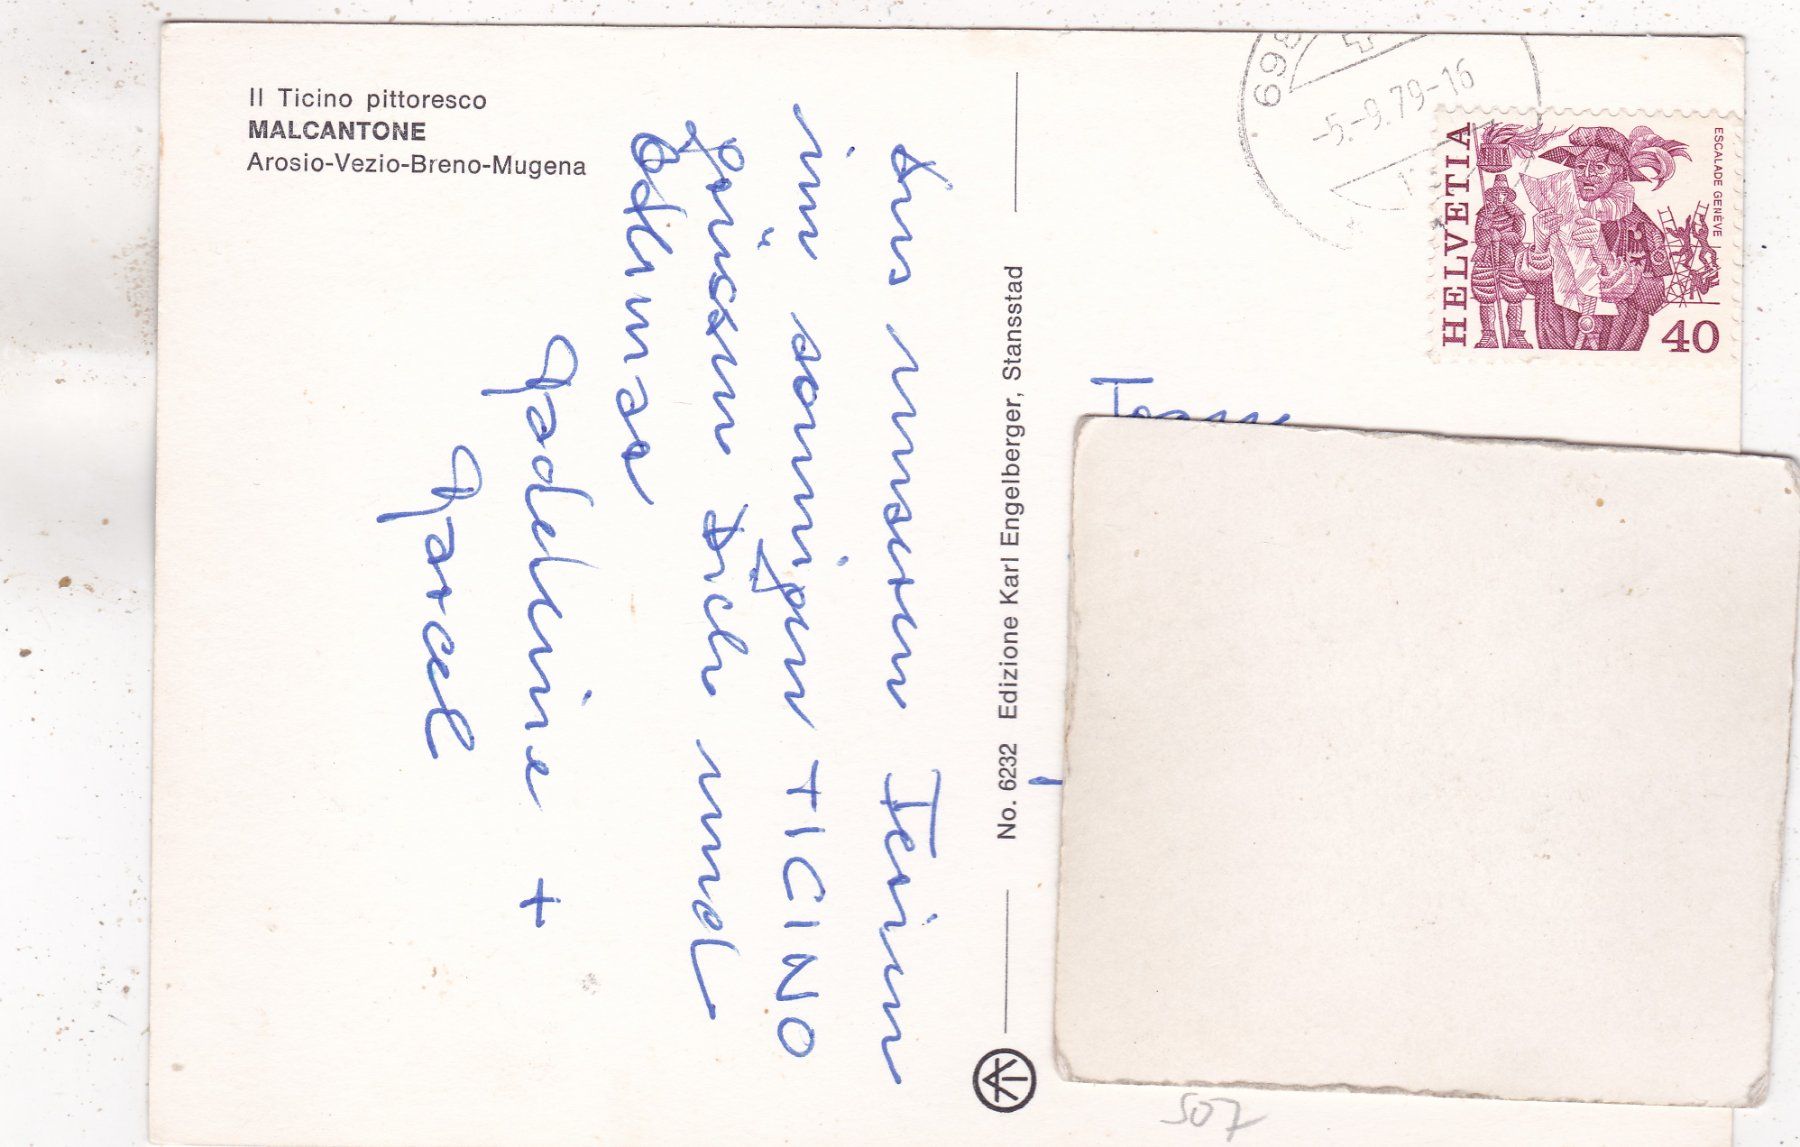 Il Ticino pittoresco
MALCANTONE
Arosio-Vezio-Breno-Mugena
Aus unseren Ferien
im sonnigen TICINO
grüssen Dich und
Madeleine +
Marcel
No. 6232 Edizione Karl Engelberger, Stansstad
-5.-9.79-16
HELVETIA
ESCALADE GENÈVE
40
507